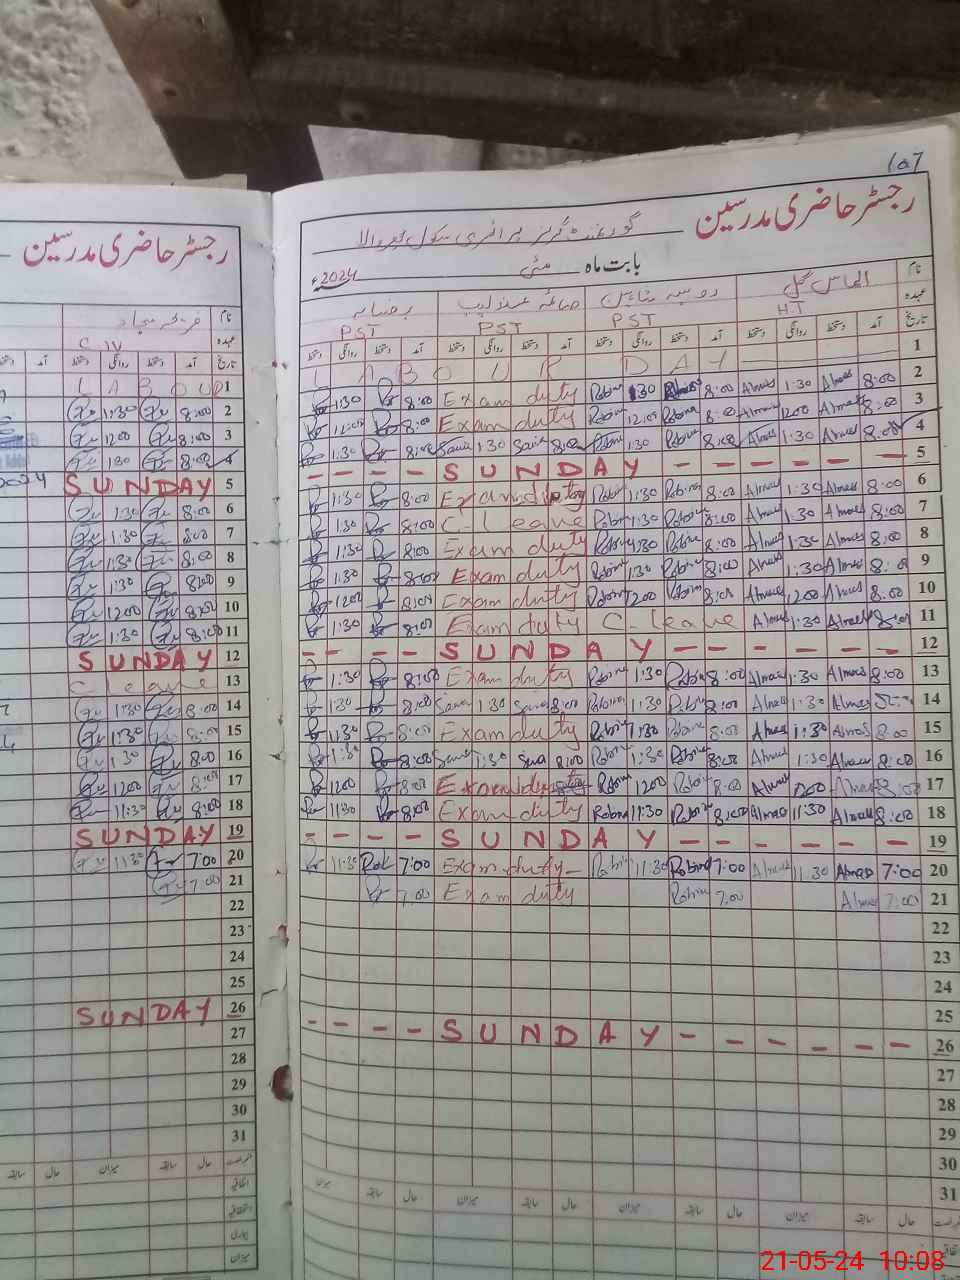 107
رجسٹر حاضری مدرسین
گورنمنٹ گرلز پرائمری سکول
بابت ماہ مئی 2024ء
نام الماس گل روبینہ صائمہ عندلیب رضانہ
عہدہ H.T PST PST PST
تاریخ آمد دستخط روانگی دستخط آمد دستخط روانگی دستخط آمد دستخط روانگی دستخط آمد دستخط روانگی دستخط
LABOUR DAY 1
1:30 8:00 Exam duty Robina 1:30 8:00 Almas 1:30 Almas 8:00 2
12:00 8:00 Exam duty Robina 12:00 Robina 8:00 Almas 1200 Almas 8:00 3
1:30 8:00 Saima 1:30 Saima 8:00 Robina 1:30 Robina 8:00 Almas 1:30 Almas 8:00 4
- - - - SUNDAY - - - - - - 5
1:30 8:00 Exam duty Robina 1:30 Robina 8:00 Almas 1:30 Almas 8:00 6
1:30 8:00 C-Leave Robina 1:30 Robina 8:00 Almas 1:30 Almas 8:00 7
1:30 8:00 Exam duty Robina 1:30 Robina 8:00 Almas 1:30 Almas 8:00 8
1:30 8:00 Exam duty Robina 1:30 Robina 8:00 Almas 1:30 Almas 8:00 9
1200 8:00 Exam duty Robina 1200 Robina 8:00 Almas 1200 Almas 8:00 10
1:30 8:00 Exam duty C-leave Almas 1:30 Almas 8:00 11
- - - - SUNDAY - - - - - - 12
1:30 8:00 Exam duty Robina 1:30 Robina 8:00 Almas 1:30 Almas 8:00 13
1:30 8:00 Saima 1:30 Saima 8:00 Robina 1:30 Robina 8:00 Almas 1:30 Almas 14
1:30 8:00 Exam duty Robina 1:30 Robina 8:00 Almas 1:30 Almas 8:00 15
1:30 8:00 Saima 1:30 Saima 8:00 Robina 1:30 Robina 8:00 Almas 1:30 Almas 8:00 16
1200 8:00 Exam duty Robina 1200 Robina 8:00 Almas 1200 Almas 8:00 17
11:30 8:00 Exam duty Robina 11:30 Robina 8:00 Almas 11:30 Almas 8:00 18
- - - - SUNDAY - - - - - - 19
11:30 7:00 Exam duty Robina 11:30 Robina 7:00 Almas 11:30 Almas 7:00 20
7:00 Exam duty Robina 7:00 Almas 7:00 21
22
23
24
25
- - - - SUNDAY - - - - - - - 26
27
28
29
30
31
حال سابقہ میزان حال سابقہ میزان حال سابقہ میزان حال سابقہ میزان
رجسٹر حاضری مدرسین
نام
عہدہ C-IV
تاریخ آمد دستخط روانگی دستخط آمد
LABOUR 1
1:30 8:00 2
1200 8:00 3
1:30 8:00 4
2024 SUNDAY 5
1:30 8:00 6
1:30 8:00 7
1:30 8:00 8
1:30 8:00 9
1200 8:00 10
1:30 8:00 11
SUNDAY 12
C leave 13
1:30 8:00 14
1:30 8:00 15
1:30 8:00 16
1200 8:00 17
11:30 8:00 18
SUNDAY 19
11:30 7:00 20
7:00 21
22
23
24
25
SUNDAY 26
27
28
29
30
31
حال سابقہ میزان حال سابقہ
اتفاقی
استحقاقی
بیماری
میزان
21-05-24 10:08